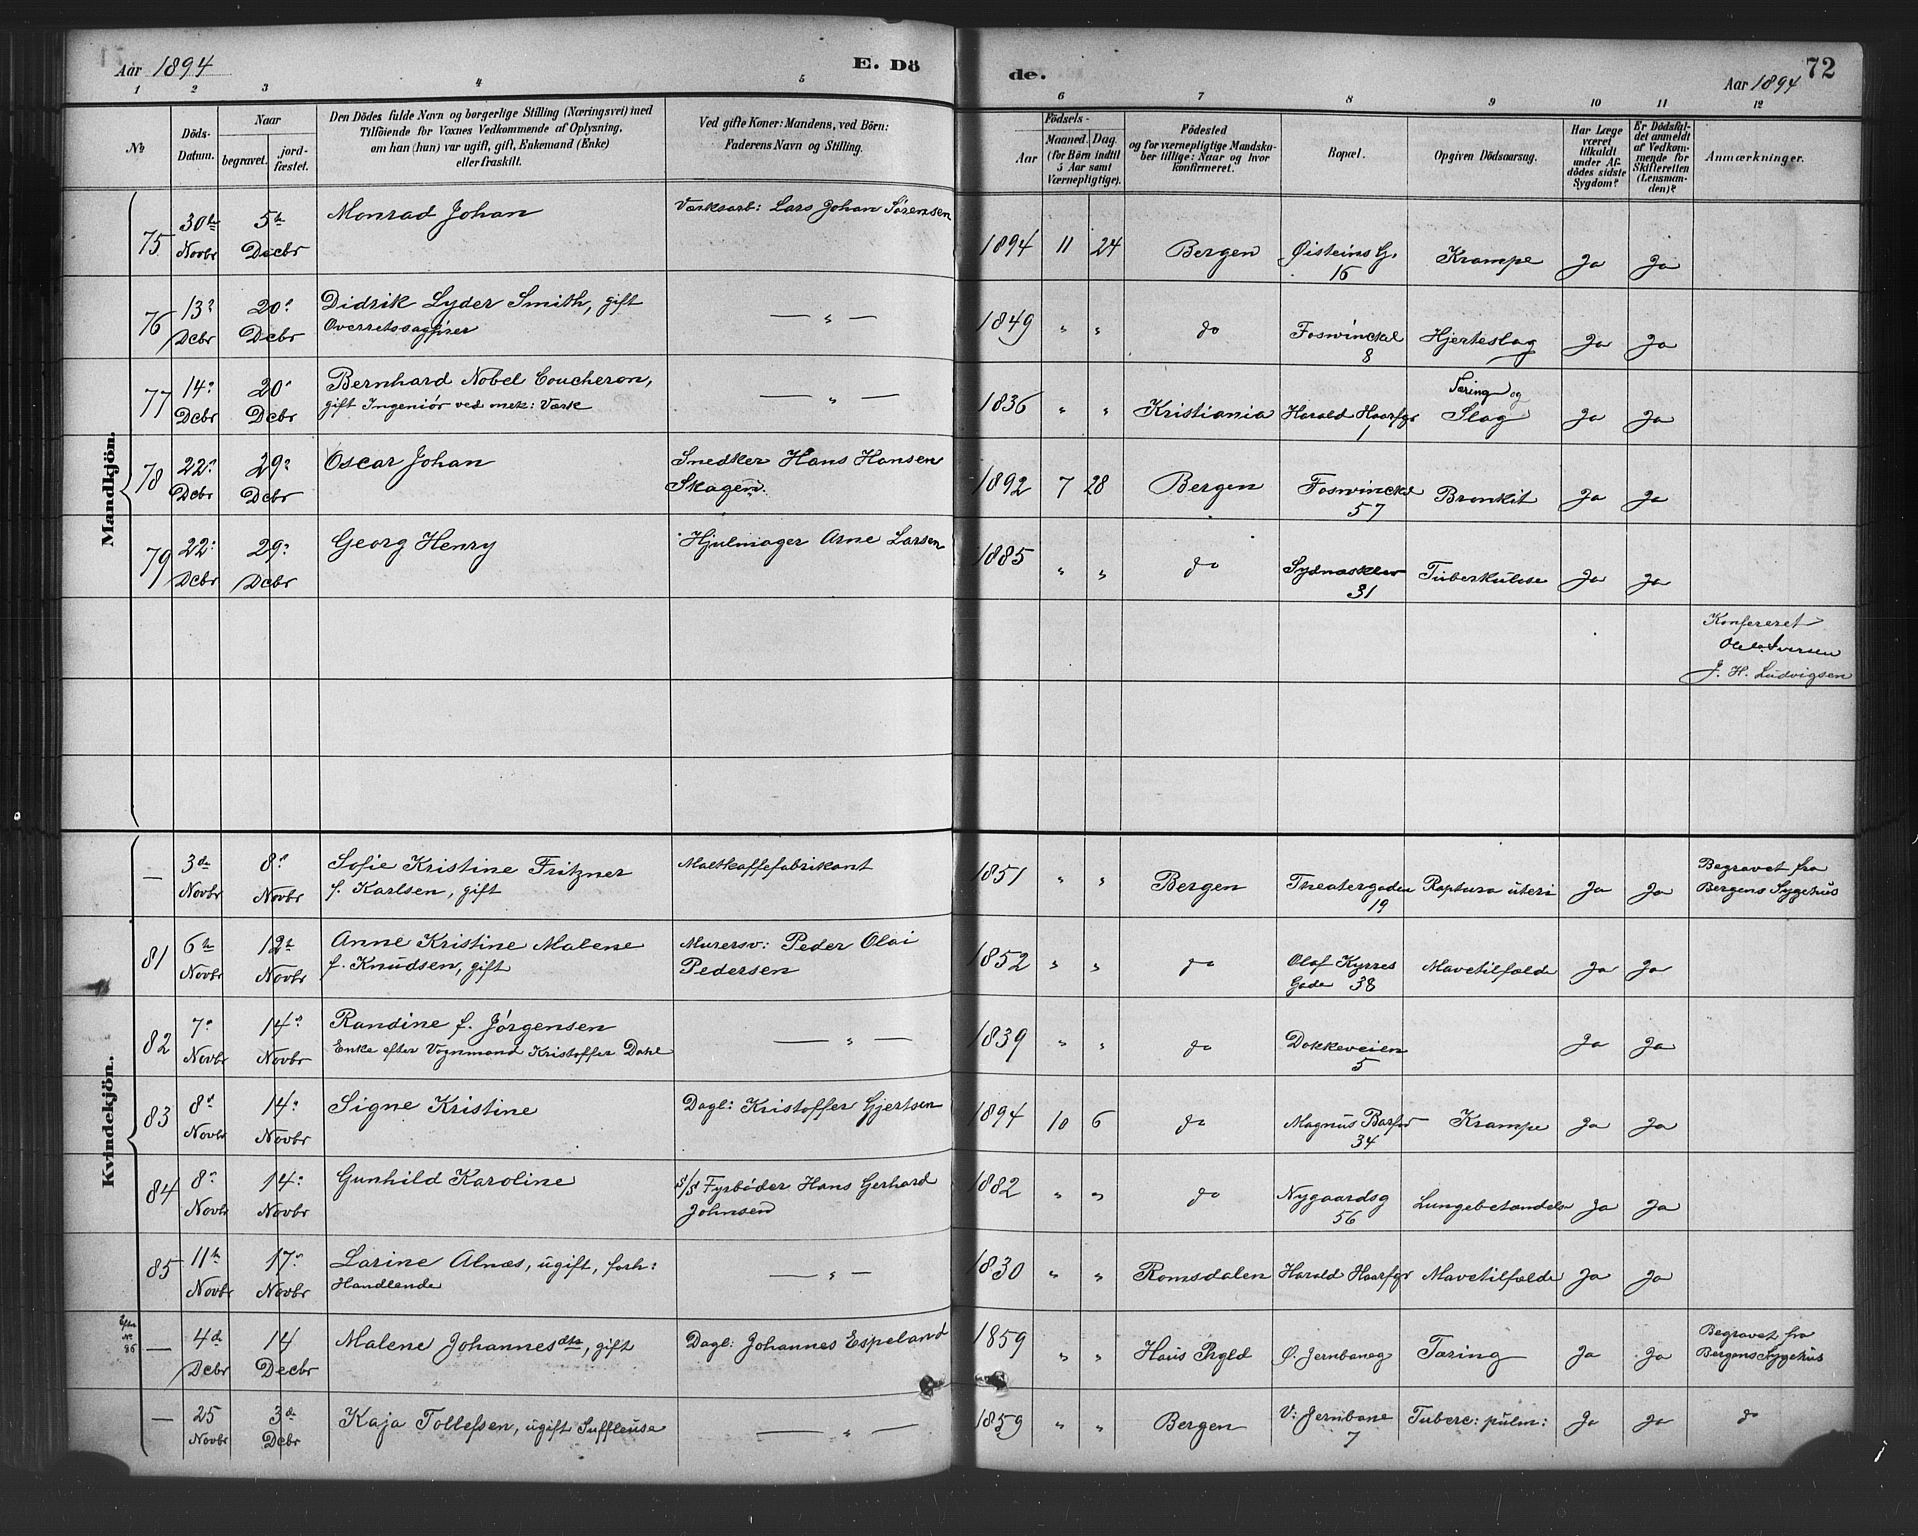 Aar 1894
E. Dö
de.
Aar 1894
72
1 2 3 4 5 6 7 8 9 10 11 12
No
Döds-Datum.
Naar
begravet.
jord-fæstet.
Den Dödes fulde Navn og borgerlige Stilling (Næringsvei) med
Tilföiende for Voxnes Vedkommende af Oplysning,
om han (hun) var ugift, gift, Enkemand (Enke)
eller fraskilt.
Ved gifte Koner: Mandens, ved Börn:
Faderens Navn og Stilling.
Födsels-
Aar
Maaned. Dag.
(for Börn indtil
5 Aar samt
Værnepligtige).
Födested
og for værnepligtige Mandska-
ber tillige: Naar og hvor
konfirmeret.
Bopæl.
Opgiven Dödsaarsag.
Har Læge
været
tilkaldt
under Af-
dödes sidste
Sygdom?
Er Dödsfal-
det anmeldt
af Vedkom-
mende for
Skifteretten
(Lensman-
den)?
Anmærkninger.
Mandkjön.
75 30te Novbr 5te Decbr Monrad Johan Værksarb: Lars Johan Sørensen 1894 11 24 Bergen Øisteins G. 15 Krampe Ja Ja
76 13de Dcbr 20de Dcbr Didrik Lyder Smith, gift
Overretssagfører — „ — 1849 „ „ do Foswinckel 8 Hjerteslag Ja Ja
77 14de Dcbr 20de Dcbr Bernhard Nobel Coucheron,
gift Ingeniør ved mek: Værk — „ — 1836 „ „ Kristiania Harald Haarfgr 1 Tæring og Slag Ja Ja
78 22de Dcbr 29de Dcbr Oscar Johan Snedker Hans Hansen
Skagen. 1892 7 28 Bergen Foswinckel 57 Bronkit Ja Ja
79 22de Dcbr 29de Dcbr Georg Henry Hjulmager Arne Larsen 1885 „ „ do Sydnæsklev 31 Tuberkulose Ja Ja
Konfereret
J. H. Ludvigsen
Kvindekjön.
— 3de Novbr 8de Novbr Sofie Kristine Fritzner
f. Karlsen, gift Maltkaffefabrikant 1851 „ „ Bergen Theatergaden 19 Ruptura uteri Ja Ja Begravet fra
Bergens Sygehus
81 6te Novbr 12te Novbr Anne Kristine Malene
f. Knudsen, gift Murersv: Peder Olai
Pedersen 1852 „ „ do Olaf Kyrres
Gade 38 Mavetilfælde Ja Ja
82 7de Novbr 14de Novbr Randine f. Jørgensen
Enke efter Vognmand Kristoffer Dahl — „ — 1839 „ „ do Dokkeveien 5 Ja Ja
83 8de Novbr 14de Novbr Signe Kristine Dagl: Kristoffer Gjertsen 1894 10 6 do Magnus Barfor 34 Krampe Ja Ja
84 8de Novbr 14de Novbr Gunhild Karoline S/S Fyrbøder Hans Gerhard
Johnsen 1882 „ „ do Nygaardsg 56 Lungebetændelse Ja Ja
85 11te Novbr 17de Novbr Larine Alnæs, ugift, forh:
Handlende — „ — 1830 „ „ Romsdalen Harald Haarfgr Mavetilfælde Ja Ja
Efter Nr. 86 — 4de Dcbr 14 Decbr Malene Johannesdtr, gift Dagl: Johannes Espeland 1859 „ „ Haus Prgld Ø. Jernbaneg Tæring Ja Ja Begravet fra
Bergens Sygehus
— 25 Novbr 3de Dcbr Kaja Tollefsen, ugift Suffleuse — „ — 1859 „ „ Bergen V: Jernbane 7 Tuberc: pulm: Ja Ja do